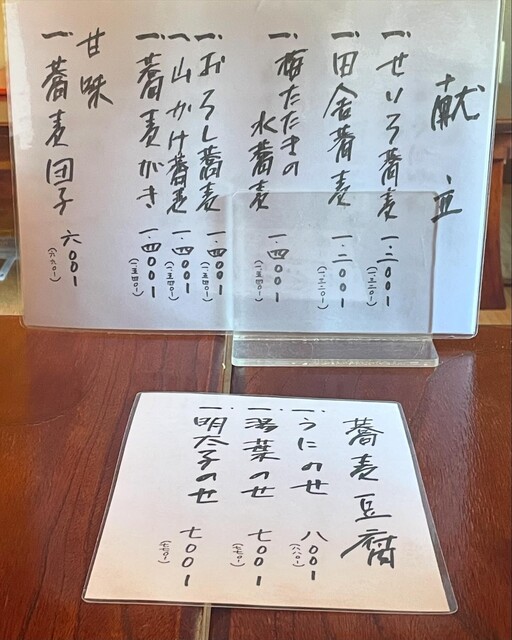 献立
一、せいろ蕎麦 一、二〇〇ー
(一、三二〇ー)
一、田舎蕎麦 一、二〇〇ー
(一、三二〇ー)
一、梅たたきの
水蕎麦 一、四〇〇ー
(一、五四〇ー)
一、おろし蕎麦 一、四〇〇ー
(一、五四〇ー)
一、山かけ蕎麦 一、四〇〇ー
(一、五四〇ー)
一、蕎麦がき 一、四〇〇ー
(一、五四〇ー)
甘味
一、蕎麦団子 六〇〇ー
(六六〇ー)
蕎麦豆腐
一、うにのせ 八〇〇ー
(八八〇ー)
一、湯葉のせ 七〇〇ー
(七七〇ー)
一、明太子のせ 七〇〇ー
(七七〇ー)